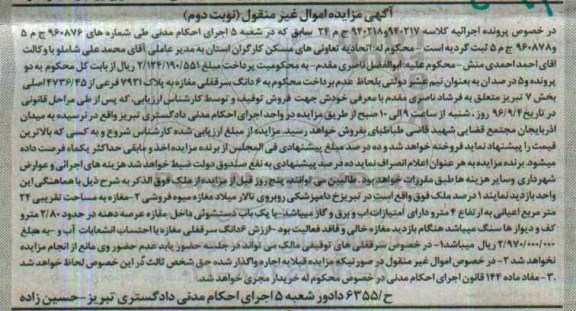 آگهی مزایده اموال غیر منقول(نوبت دوم)
در خصوص پرونده اجرائیه کلاسه ۹۴۰۲۱۷و۹۴۰۲۱۸ ج م ۲۴ سابق که در شعبه ۵ اجرای احکام مدنی طی شماره های ۹۶۰۸۷۶ ج م ۵
و ۹۶۰۸۷۸ ج م ۵ ثبت گردیه است – محکوم له:اتحادیه تعاونی های مسکن کارگران استان به مدیر عاملی آقای محمد علی شاملو با وکالت
اقای احمداحمدی منش- محکوم علیه:ابوالفضل ناصری مقدم- به محکومیت پرداخت مبلغ ۲/۱۳۴/۱۹۰/۵۵۱ ریال از بابت کل محکوم به دو
پرونده و۵ در صدان به بعنوان نیم عشر دولتی بلحاظ عدم پرداخت محکوم به ۶ دانگ سرقفلی مغازه به پلاک ۷۹۳۱ فرعی از ۴۷۳۶/۴۵ اصلی
بخش ۷ تبریز متعلق به فرشاد ناصری مقدم با معرفی خودش جهت فروش توقیف و توسط کارشناس ارزیابی،که پس از طی مراحل قانونی
در تاریخ ۹۶/۹/۴ روز ، شنبه از ساعت ۹ الی ۱۰ صبح از طریق مزایده در واحد اجرای احکام مدنی دادگستری تبریز واقع در نرسیده به میدان
اذربایجان مجتمع قضایی شهید قاضی طباطبای بفروش خواهد رسید. مزایده از مبلغ ارزیابی شده کارشناس شروع و به کسی که بالاترین
قیمت را پیشنهاد نماید فروخته خواهد شد و ده در صد مبلغ پیشنهادی فی المجلس از برنده مزایده اخذ و مابقی حداکثر یکماه فرصت داده
میشود.برنده مزایده به هر عنوان اعلام انصراف نماید ده درصد پیشنهادی به نفع صندوق دولت ضبط خواهد شد هزینه های اجرائی و عوارض
شهرداری وسایر هزینه ها طبق مقررات خواهد بود. طالبین می توانند پنج روز قبل از مزایده از ملک فوق الذکر به شرح ذیل با هماهنگی این
واحد بازدید نمایند ۱ درصد ملک فوق واقع است در تبریزخ دامپزشکی روبروی تالار میلاد مغازه میوه فروشی ۲-مغازه به مساحت تقریبی ۲۴
متر مربع اعیانی به ارتفاع ۴ مترو دارای امتیازات اب و برق و گاز میباشد- با یک باب دستشوئی داخل مغازه عرصه دهنه در حدود ۲/۸۰ مترو
کف و دیوار ها سنگ میباشد هنگام بازدید مغازه خالی و فاقد فعالیت بود -ارزش ۶دانگ سرقفلی مغازه با احتساب انشعابات آب و -به مبلغ
۲/۹۷۰/۰۰۰/۰۰۰ ریال میباشد۱- در خصوص سرقفلی های توقیفی مالک می تواند در جلسه حضور یابد عدم حضور وی مانع از انجام مزایده
نخواهد شد ۲- در خصوص اموال غیر منقول در صورتیکه مزایده قبلا به اجاره واگذار شده حق شخص ثالث در این خصوص لحاظ خواهد شد
۳- مفاد ماده ۱۴۴ قانون اجرای احکام مدنی در خصوص محکوم له خریدار مجری خواهد شد.
ح/۶۳۵۵ دادور شعبه ۵ اجرای احکام مدنی دادگستری تبریز-حسین زاده